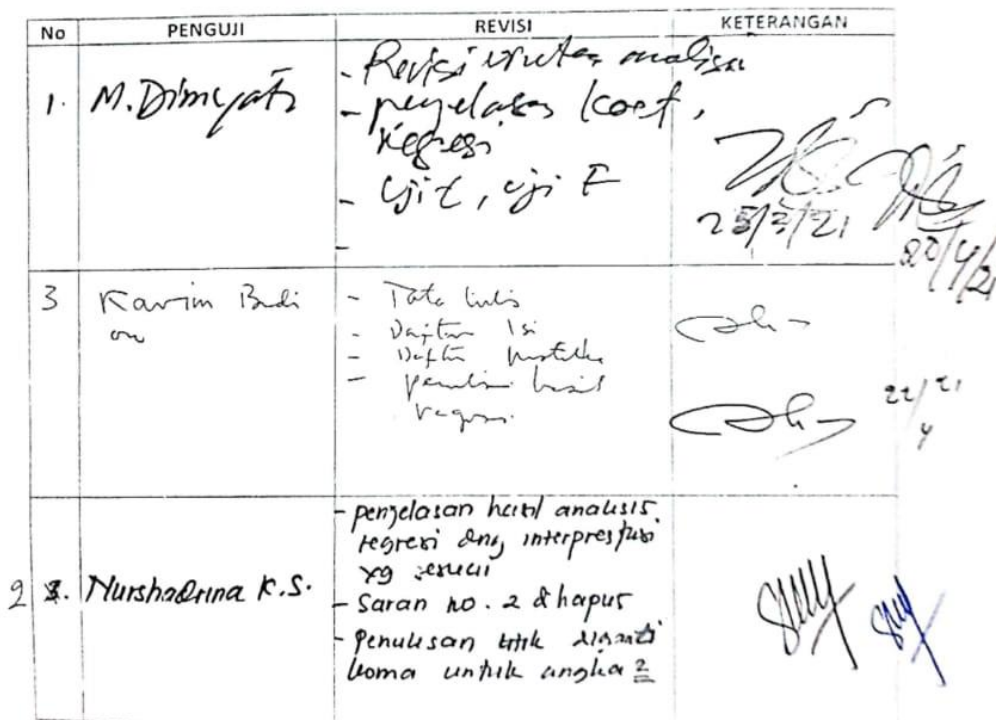 No PENGUJI REVISI KETERANGAN
1. M. Dimyati
- Revisi urutan analisa
- penjelasan koef,
regresi
- Uji t, uji F
-
25/3/21
20/4/21
3 Karim Budi
ono
- Tata tulis
- Daftar Isi
- Daftar pustaka
- penulisan hasil
regresi.
22/21
4
2 3. Nurshadrina K.S.
- penjelasan hasil analisis
regresi dng interprestasi
yg sesuai
- Saran no. 2 dihapus
- Penulisan titik diganti
koma untuk angka 2